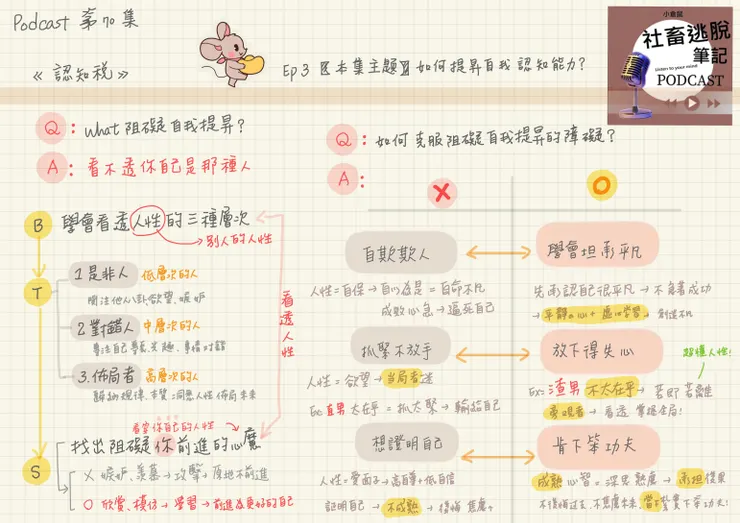 Podcast 第70集
《認知稅》
Ep 3〖本集主題〗如何提昇自我認知能力？
小倉鼠
社畜逃脫
筆記
Listen to your mind
PODCAST
Q：What 阻礙自我提昇？
A：看不透你自己是那種人
B 學會看透人性的三種層次
別人的人性
T
1 是非人 低層次的人
關注他人八卦、欲望、嫉妒
2 對錯人 中層次的人
專注自己專長、興趣、事情對錯
3.佈局者 高層次的人
歸納規律、本質、洞悉人性佈局未來
看透人性
看穿你自己的人性
S 找出阻礙你前進的心魔
X 嫉妒、羨慕→攻擊→原地不前進
O 欣賞、模仿→學習→前進為更好的自己
Q：如何克服阻礙自我提昇的障礙？
A：
X O
自欺欺人 學會坦承平凡
人性=自保→自以為是=自命不凡
成敗心急→逼死自己
先承認自己很平凡→不急著成功
→平靜の心+虛心學習→創造不凡
抓緊不放手 放下得失心
超懂人性！
人性=欲望→當局者迷
Ex：直男 太在乎=抓太緊→輸給自己
Ex：渣男 不太在乎→若即若離
旁觀者→看透 掌握全局！
想證明自己 肯下笨功夫
人性=愛面子→高自尊+低自信
証明自己→不成熟→後悔 焦慮+
成熟心智=深思熟慮→承担後果
不後悔過去、不焦慮未來、當下紮實下笨功夫！